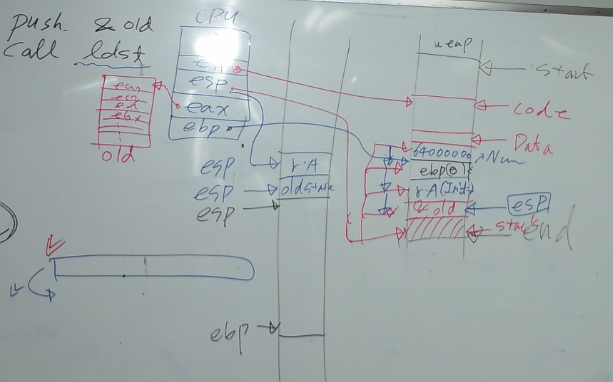 push & old
call ldst
CPU
esp
eax
ebp
eax
ebx
old
esp
esp
esp
r.A
ebp
heap
start
code
Data
64000000
Num
ebp(0)
r.A(Int)
& old
esp
stack
end